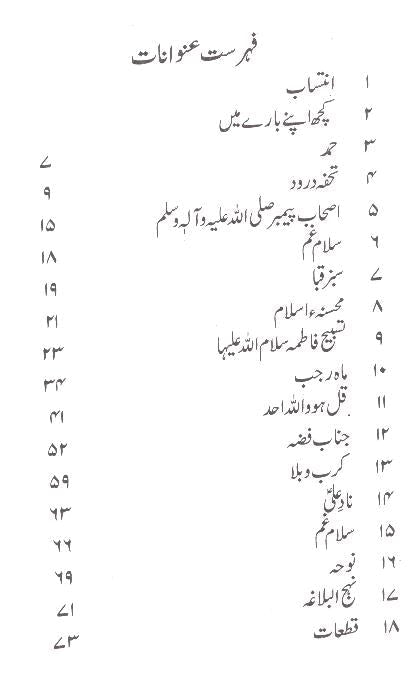 فہرست عنوانات
۱ انتساب
۲ کچھ اپنے بارے میں
۳ حمد ۷
۴ تحفہ درود ۹
۵ اصحاب پیمبر صلی اللہ علیہ و آلہ وسلم ۱۵
۶ سلام غم ۱۸
۷ سبز قبا ۱۹
۸ محسنہء اسلام ۲۱
۹ تسبیح فاطمہ سلام اللہ علیہا ۲۳
۱۰ ماہ رجب ۳۴
۱۱ قل ھو واللہ احد ۴۱
۱۲ جناب فضہ ۵۲
۱۳ کرب و بلا ۵۹
۱۴ نادِ علیؑ ۶۳
۱۵ سلام غم ۶۶
۱۶ نوحہ ۶۹
۱۷ نہج البلاغہ ۷۱
۱۸ قطعات ۷۳